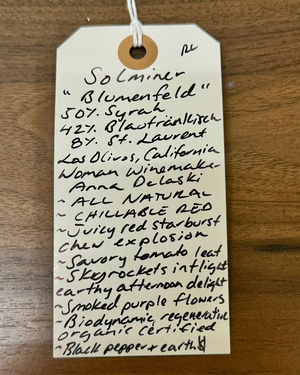 RL
Solminer
"Blumenfeld"
50% Syrah
42% Blaufränkisch
8% St. Laurent
Los Olivos, California
Woman Winemaker
Anna Delaski
~ ALL NATURAL
~ CHILLABLE RED
~ Juicy red starburst
chew explosion
~ Savory tomato leaf
~ Skyrockets inflight
earthy afternoon delight
~ Smoked purple flowers
~ Biodynamic, regenerative
organic certified
~ Black pepper + earth